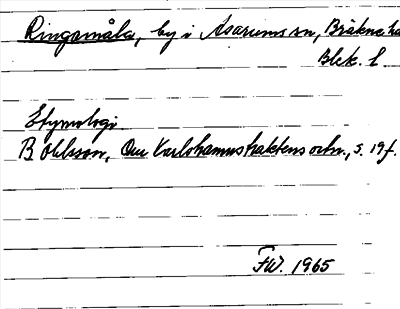 Ringamåla, by i Asarums sn, Bräkne hd
Blek. l.
Etymologi.
B Ohlsson, Om Karlshamnstraktens ortn., s. 19f.
F.W. 1965